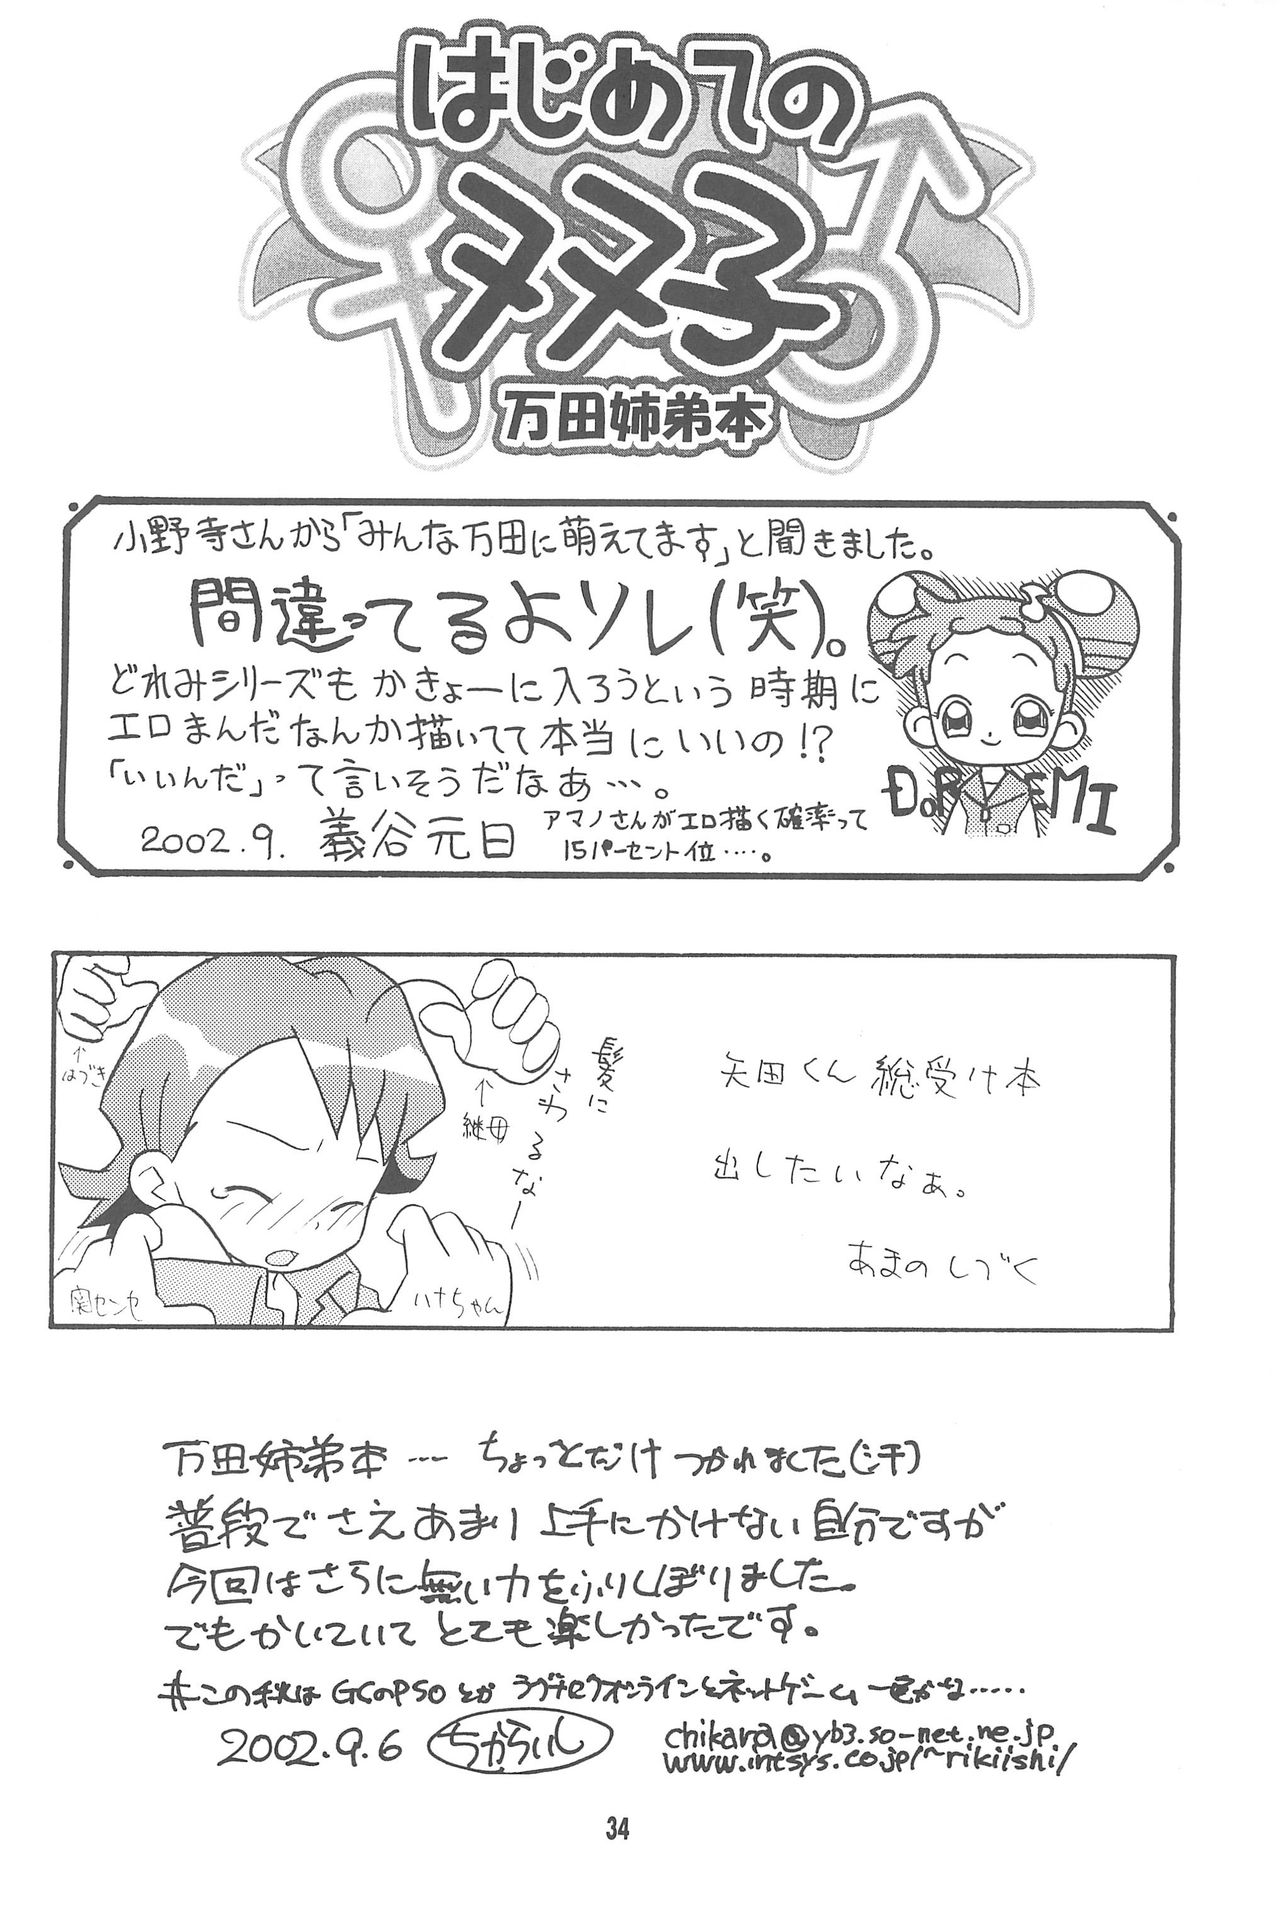 はじめての
双子
万田姉弟本
小野寺さんから「みんな万田に萌えてます」と聞きました。
間違ってるよソレ(笑)。
どれみシリーズもかきょーに入ろうという時期に
エロまんだなんか描いてて本当にいいの!?
「いいんだ」って言いそうだなぁ…。
2002.9. 義谷元日
アマノさんがエロ描く確率って
15パーセント位……。
DOREMI
↑
はづき
↑
継母
髪に
さわるなー
関センセ
ハナちゃん
矢田くん 総受け本
出したいなぁ。
あまのしづく
万田姉弟本 … ちょっとだけ つかれました(汗)
普段でさえあまり上手にかけない自分ですが
今回はさらに無い力をふりしぼりました。
でもかいていて とても楽しかったです。
#この秋は GCのPSOとか ラグナロクオンラインとネットゲーム 一色かな……
2002.9.6 ちからいし
chikara@yb3.so-net.ne.jp
www.intsys.co.jp/~rikiishi/
34